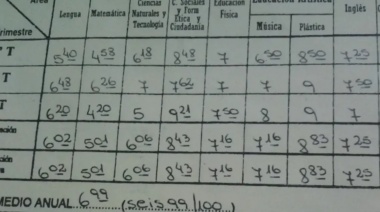 Area Lengua Matemática Ciencias Naturales y Tecnología C. Sociales y Form Ética y Ciudadanía Educación Física Música Plástica Inglés
rimestre
T 5 40 4 58 6 18 8 48 7 6 50 8 50 7 25
T 6 48 6 26 7 7 62 7 7 9 7 50
T 6 20 4 20 5 9 21 7 50 8 9 7
6 02 5 01 6 06 8 43 7 16 7 16 8 83 7 25
6 02 5 01 6 06 8 43 7 16 7 16 8 83 7 25
MEDIO ANUAL 6 99 (seis 99/100)